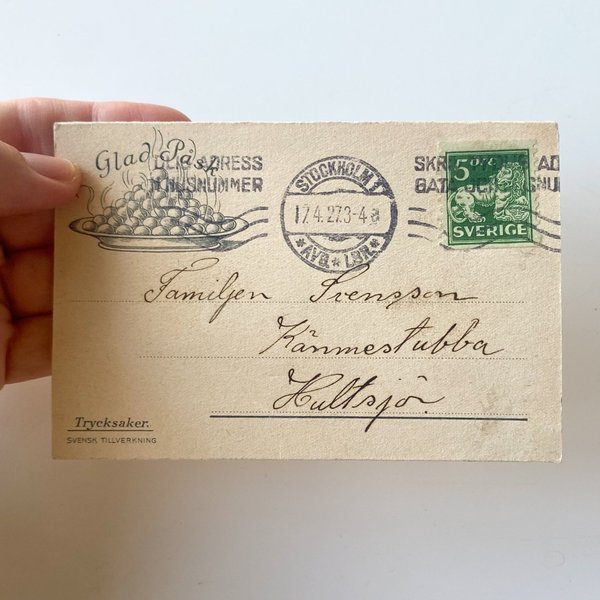 Glad Påsk
DENS ADRESS
HUSNUMMER
STOCKHOLM 1
17.4.27.3-4
*AVG.*LBR*
SKRIV
GATA OCH
5 ÖRE
SVERIGE
Familjen Svensson
Kännestubba
Hultsjö.
Trycksaker.
SVENSK TILLVERKNING